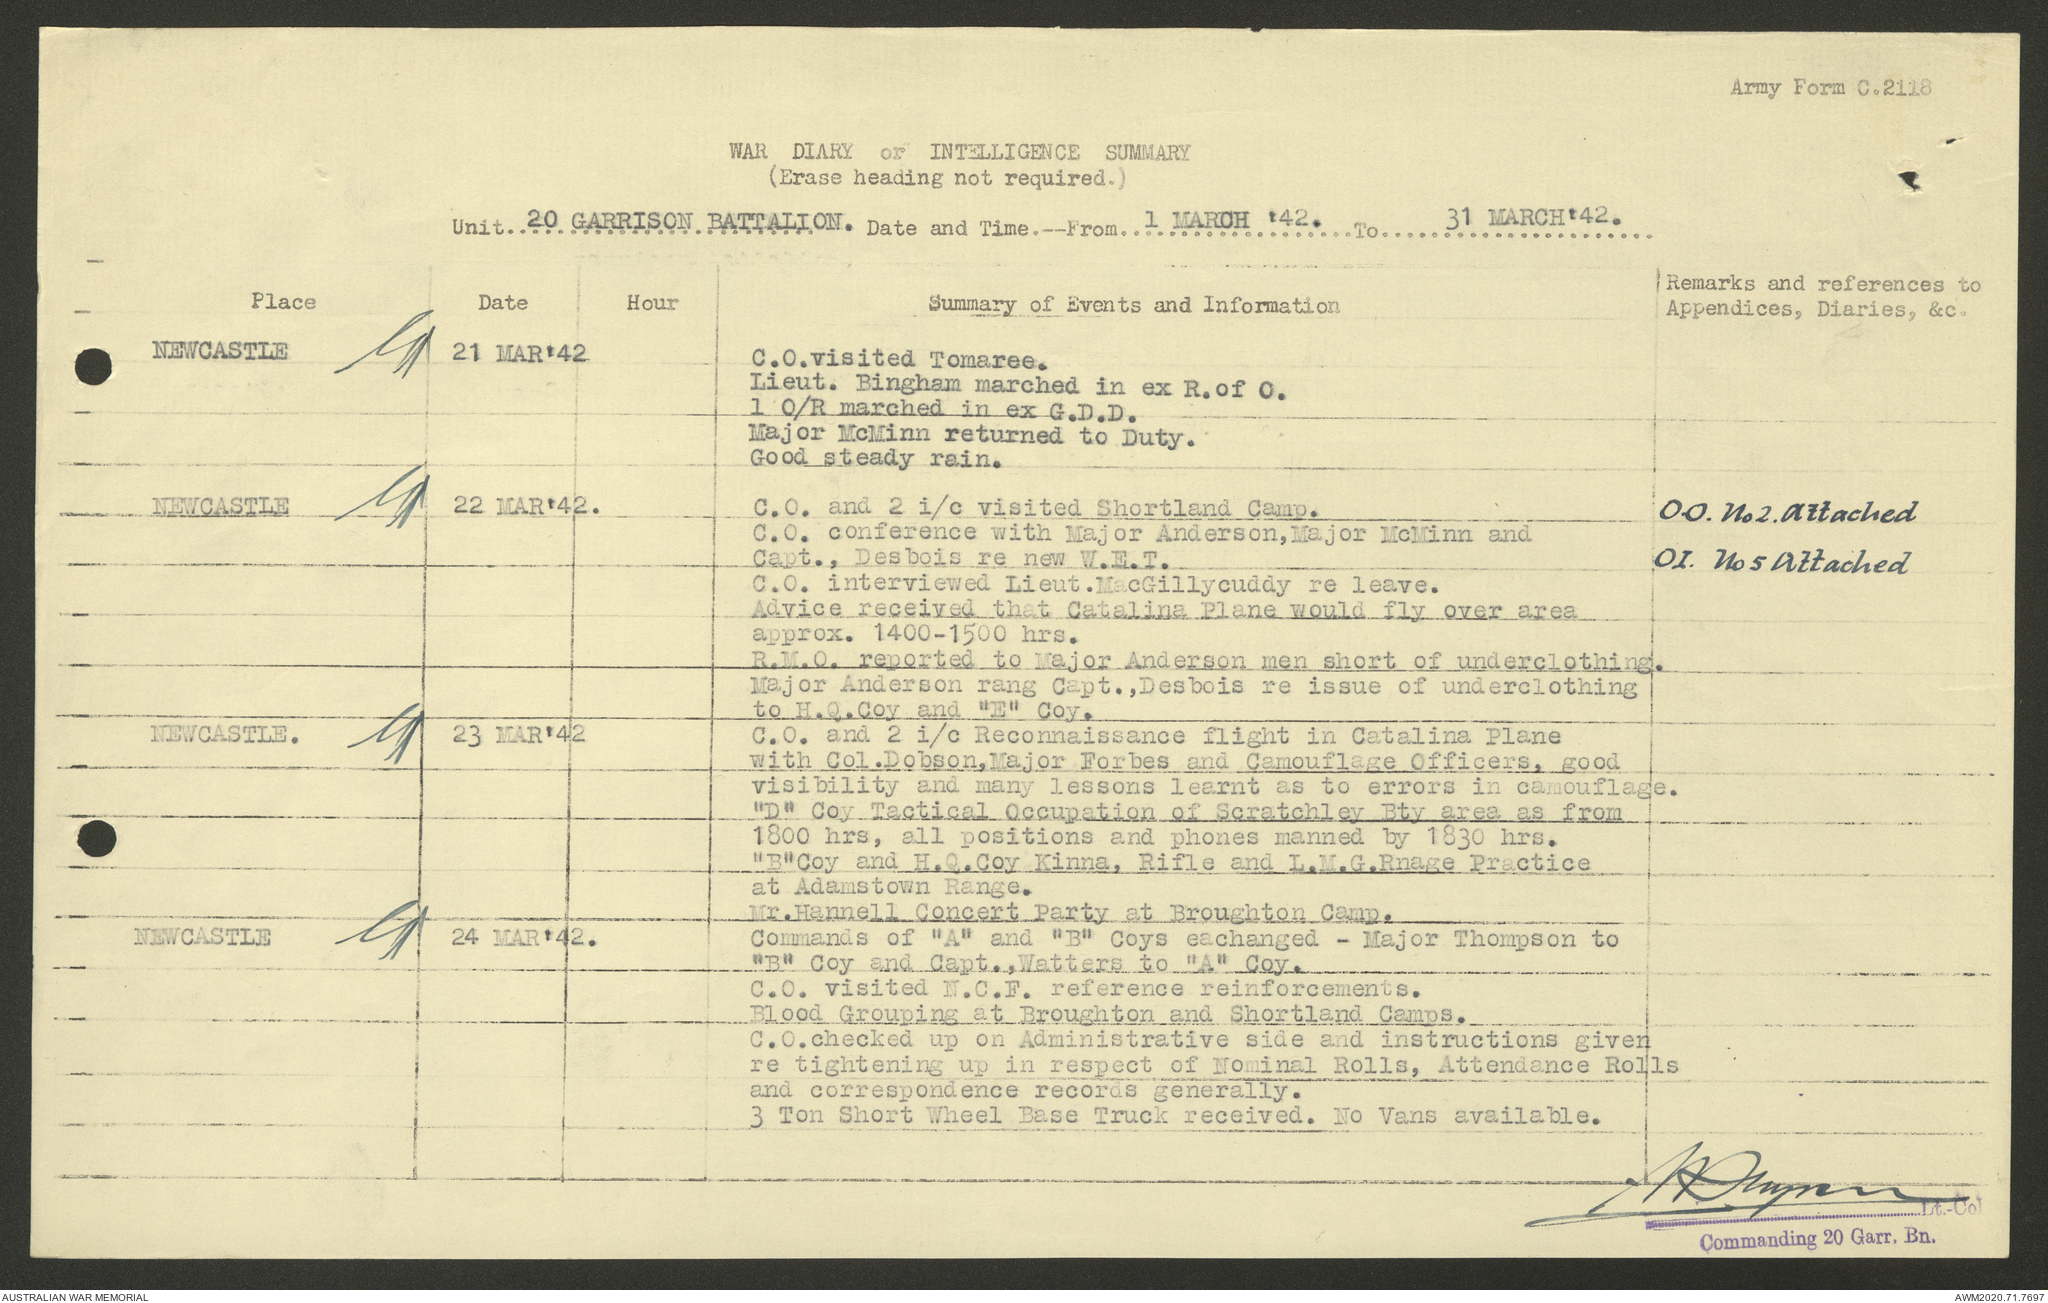 Army Form C.2118
WAR DIARY or INTELLIGENCE SUMMARY
(Erase heading not required.)
Unit..20 GARRISON BATTALION. Date and Time.--From..1 MARCH '42. To 31 MARCH'42.
Place Date Hour Summary of Events and Information Remarks and references to
Appendices, Diaries, &c.
NEWCASTLE 21 MAR'42 C.O.visited Tomaree.
Lieut. Bingham marched in ex R.of O.
1 O/R marched in ex G.D.D.
Major McMinn returned to Duty.
Good steady rain.
NEWCASTLE 22 MAR'42. C.O. and 2 i/c visited Shortland Camp. O.O. No 2. Attached
C.O. conference with Major Anderson,Major McMinn and
Capt., Desbois re new W.E.T. OI. No 5 Attached
C.O. interviewed Lieut.MacGillycuddy re leave.
Advice received that Catalina Plane would fly over area
approx. 1400-1500 hrs.
R.M.O. reported to Major Anderson men short of underclothing.
Major Anderson rang Capt.,Desbois re issue of underclothing
to H.Q.Coy and "E" Coy.
NEWCASTLE. 23 MAR'42 C.O. and 2 i/c Reconnaissance flight in Catalina Plane
with Col.Dobson,Major Forbes and Camouflage Officers, good
visibility and many lessons learnt as to errors in camouflage.
"D" Coy Tactical Occupation of Scratchley Bty area as from
1800 hrs, all positions and phones manned by 1830 hrs.
"B"Coy and H.Q.Coy Kinna, Rifle and L.M.G.Rnage Practice
at Adamstown Range.
Mr.Hannell Concert Party at Broughton Camp.
NEWCASTLE 24 MAR'42. Commands of "A" and "B" Coys eachanged - Major Thompson to
"B" Coy and Capt.,Watters to "A" Coy.
C.O. visited N.C.F. reference reinforcements.
Blood Grouping at Broughton and Shortland Camps.
C.O.checked up on Administrative side and instructions given
re tightening up in respect of Nominal Rolls, Attendance Rolls
and correspondence records generally.
3 Ton Short Wheel Base Truck received. No Vans available.
Lt.-Col
Commanding 20 Garr. Bn.
AUSTRALIAN WAR MEMORIAL
AWM2020.71.7697